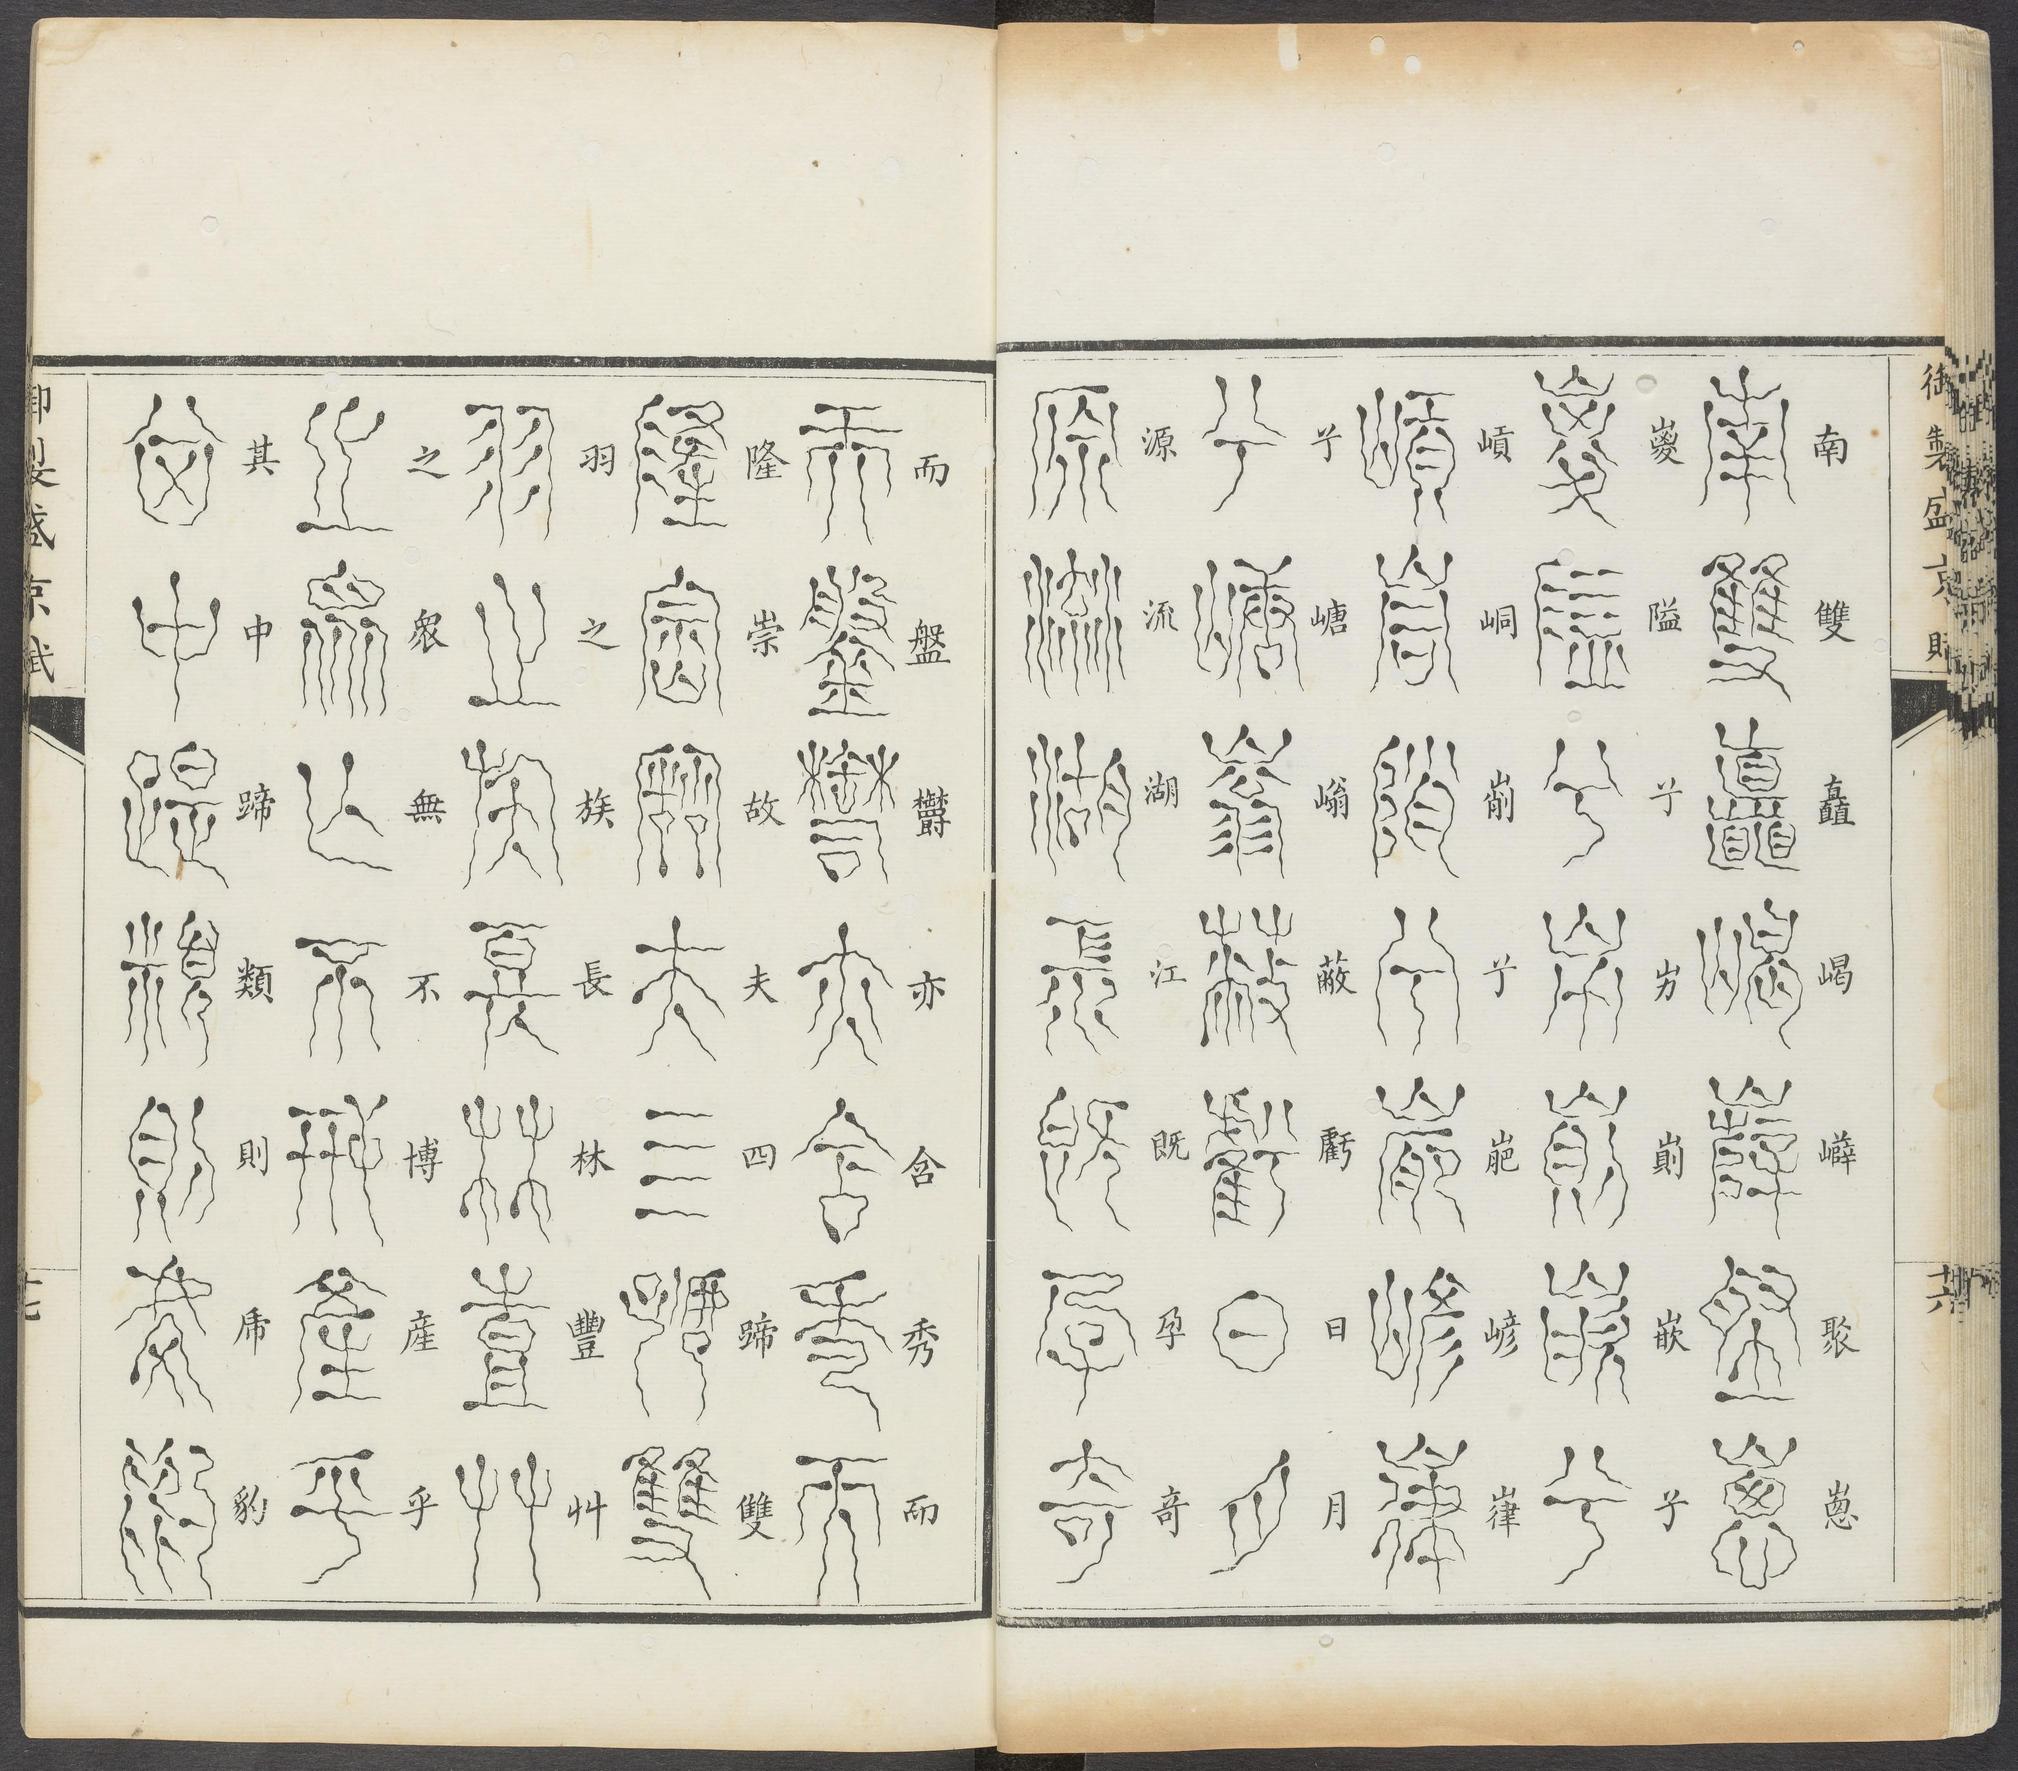 御製盛京賦
南雙矗嵑嶭聚
嵏隘兮屴崱嵌兮
嵿峒兮嵃嵂
兮嵣嵡蔽虧日月
源流湖江既孕奇
而盤欝亦含秀而
隆崇故夫四蹄雙
羽之族長林豐艸
之衆無不博產乎
其中蹄類則虎豹
御製盛京賦